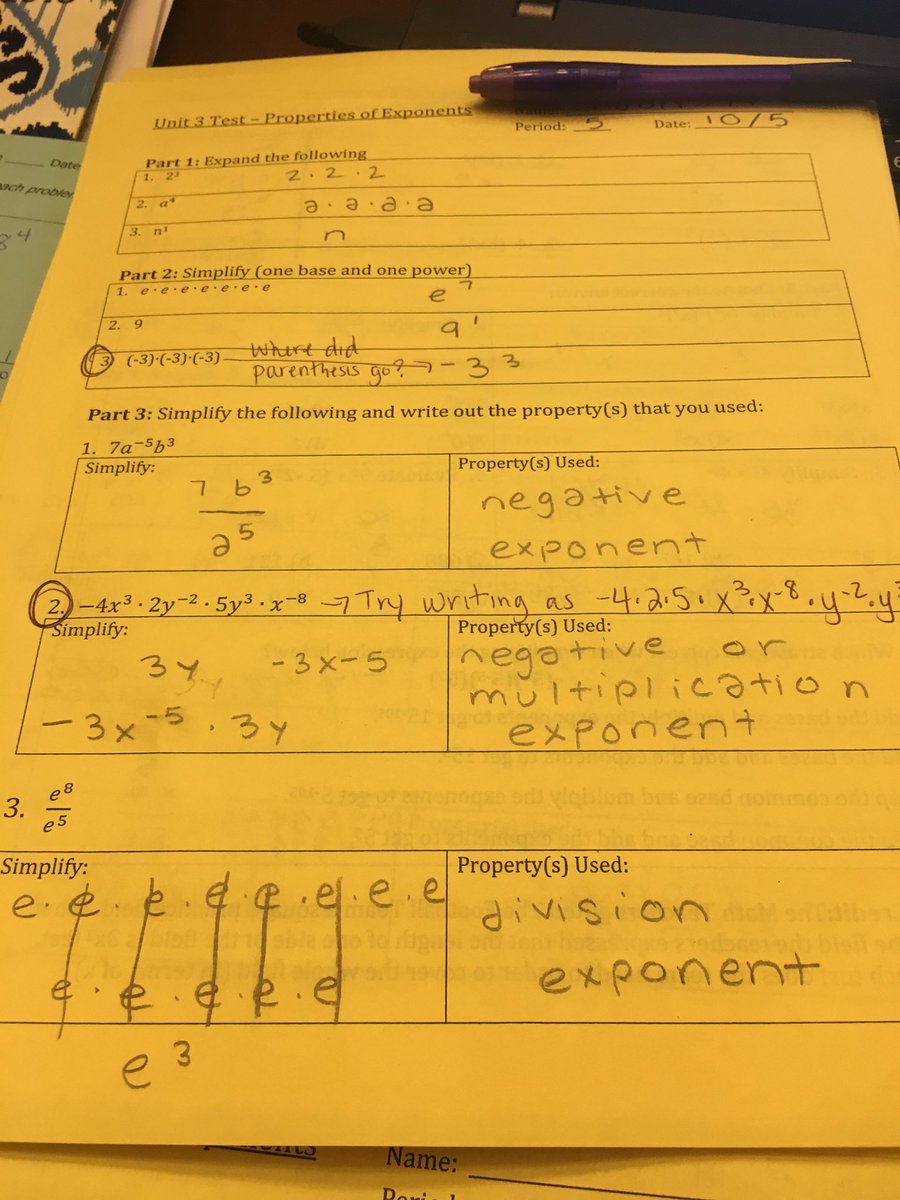 Unit 3 Test – Properties of Exponents
Period: 5 Date: 10/5
Date
Part 1: Expand the following
1. 2³ 2 · 2 · 2
2. a⁴ a · a · a · a
3. n¹ n
Part 2: Simplify (one base and one power)
1. e·e·e·e·e·e·e e⁷
2. 9 9¹
3 (-3)·(-3)·(-3) Where did
parenthesis go? → -3³
Part 3: Simplify the following and write out the property(s) that you used:
1. 7a⁻⁵b³
Simplify: Property(s) Used:
7 b³ negative
a⁵ exponent
2. −4x³ · 2y⁻² · 5y³ · x⁻⁸ → Try writing as -4·2·5· x³·x⁻⁸·y⁻²·y³
Simplify: Property(s) Used:
3y -3x-5 negative or
multiplication
-3x⁻⁵ · 3y exponent
3. e⁸
e⁵
Simplify: Property(s) Used:
e · e · e · e · e · e · e · e division
e · e · e · e · e exponent
e³
Name: